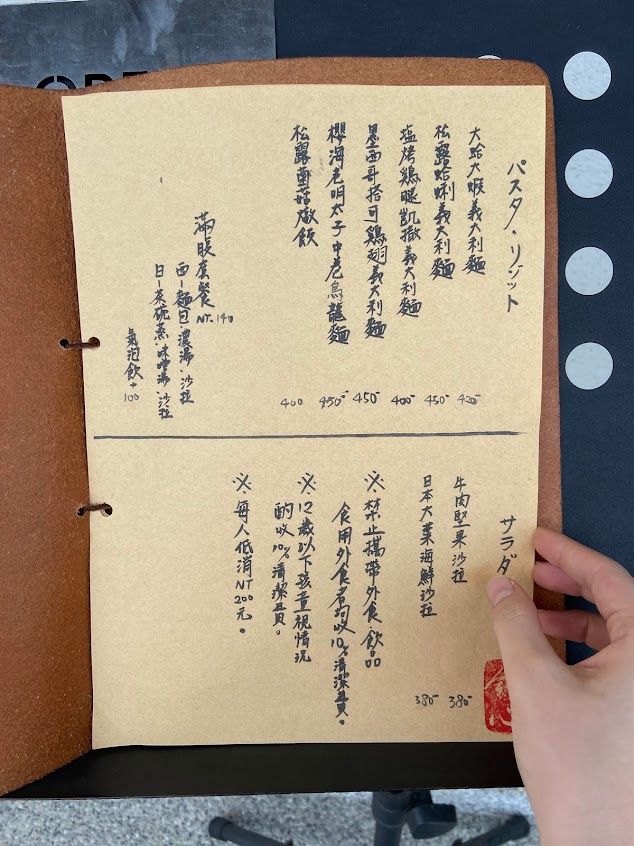 パスタ・リゾット
大蛤大蝦義大利麵 420
松露蛤蜊義大利麵 450
塩烤鶏腿凱撒義大利麵 400
墨西哥搭可鶏翅義大利麵 450
櫻海老明太子中卷烏龍麵 450
松露蕈菇燉飯 400
滿腹套餐 NT.140
西-麵包.濃湯.沙拉
日-茶碗蒸.味噌湯.沙拉
氣泡飲+100
サラダ
牛肉堅果沙拉 380
日本大葉海鮮沙拉 380
※.禁止攜帶外食.飲品
食用外食者酌收10%清潔費。
※.12歲以下孩童視情況
酌收10%清潔費。
※.每人低消NT200元。